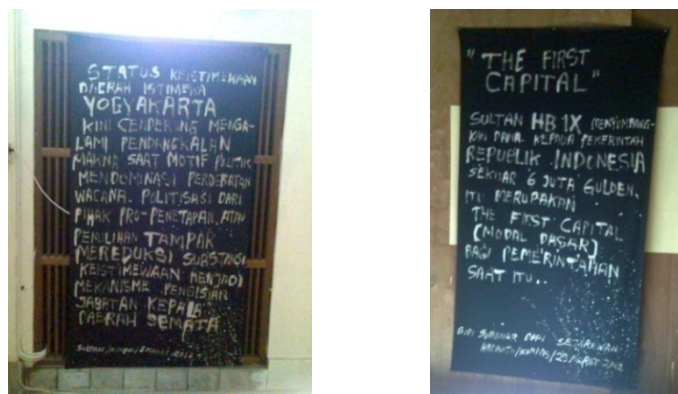 STATUS KEISTIMEWAAN
DAERAH ISTIMEWA
YOGYAKARTA
KINI CENDERUNG MENGA-
LAMI PENDANGKALAN
MAKNA SAAT MOTIF POLITIK
MENDOMINASI PERDEBATAN
WACANA. POLITISASI DARI
PIHAK PRO-PENETAPAN ATAU
PEMILIHAN TAMPAK
MEREDUKSI SUBSTANSI
KEISTIMEWAAN MENJADI
MEKANISME PENGISIAN
JABATAN KEPALA
DAERAH SEMATA
"THE FIRST
CAPITAL"
SULTAN HB 1X MENYUMBANG-
KAN DANA KEPADA PEMERINTAH
REPUBLIK INDONESIA
SEKITAR 6 JUTA GULDEN,
ITU MERUPAKAN
THE FIRST CAPITAL
(MODAL DASAR)
BAGI PEMERINTAHAN
SAAT ITU..
SUMBER DARI SEJARAWAN
MARET 2012